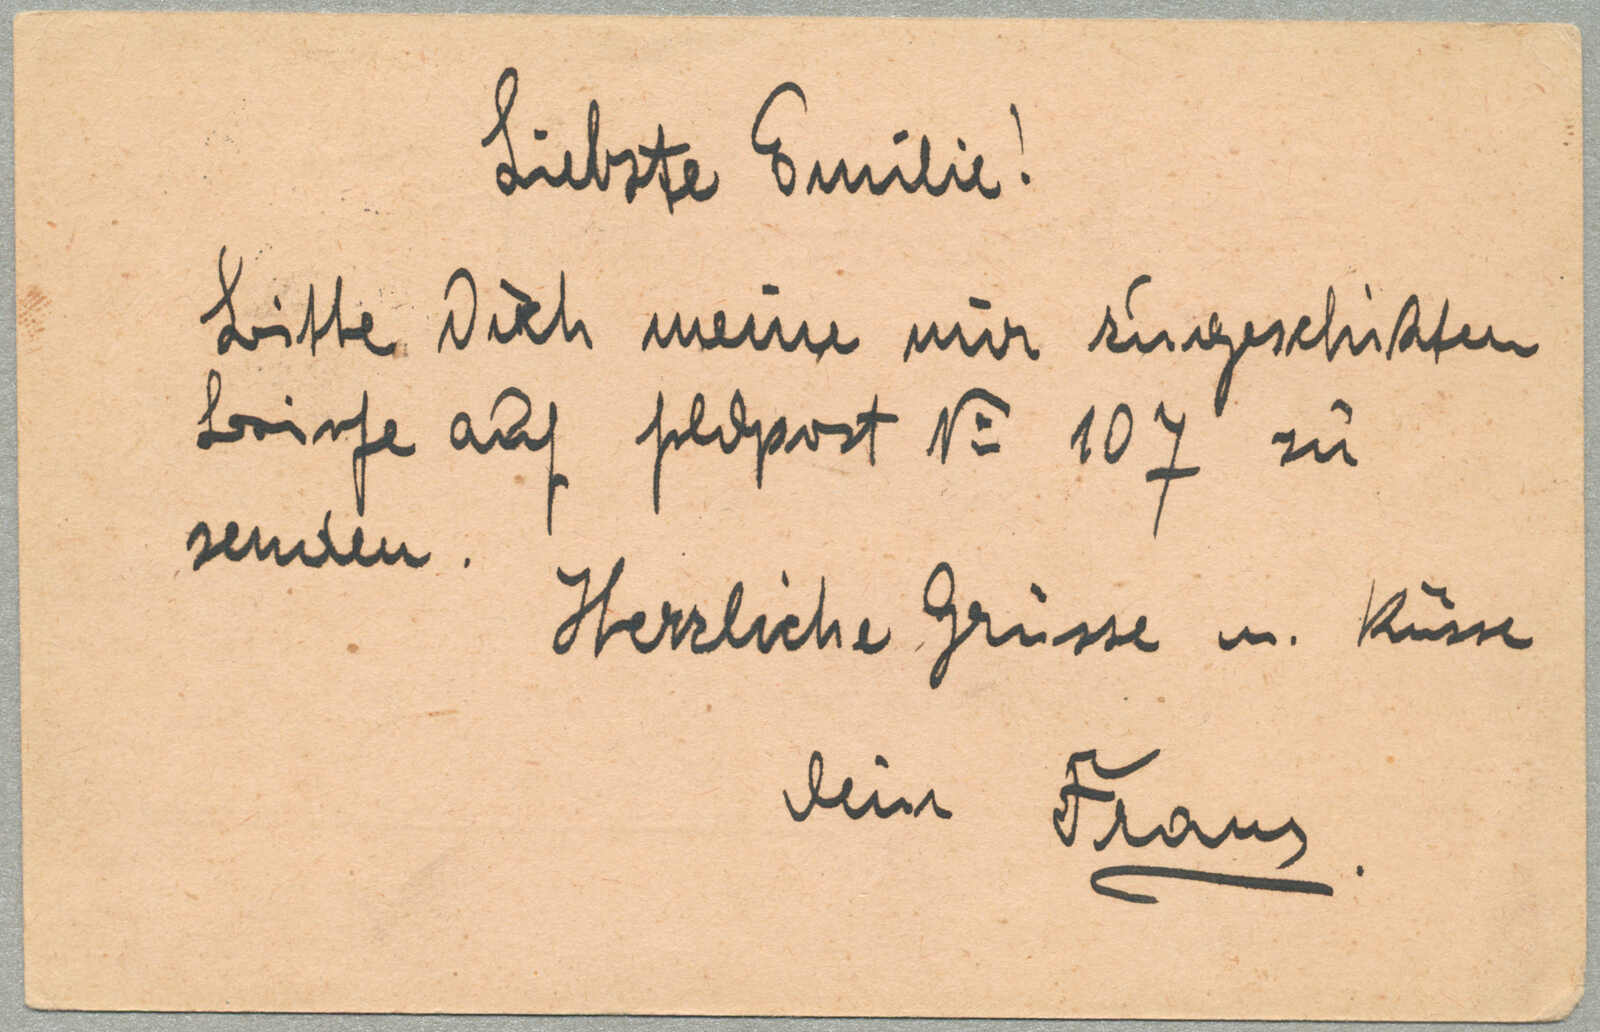 Liebste Emilie!
Bitte Dich meine mir zugeschickten
Briefe auf feldpost № 107 zu
senden.
Herzliche Grüsse u. Küsse
dein Franz.